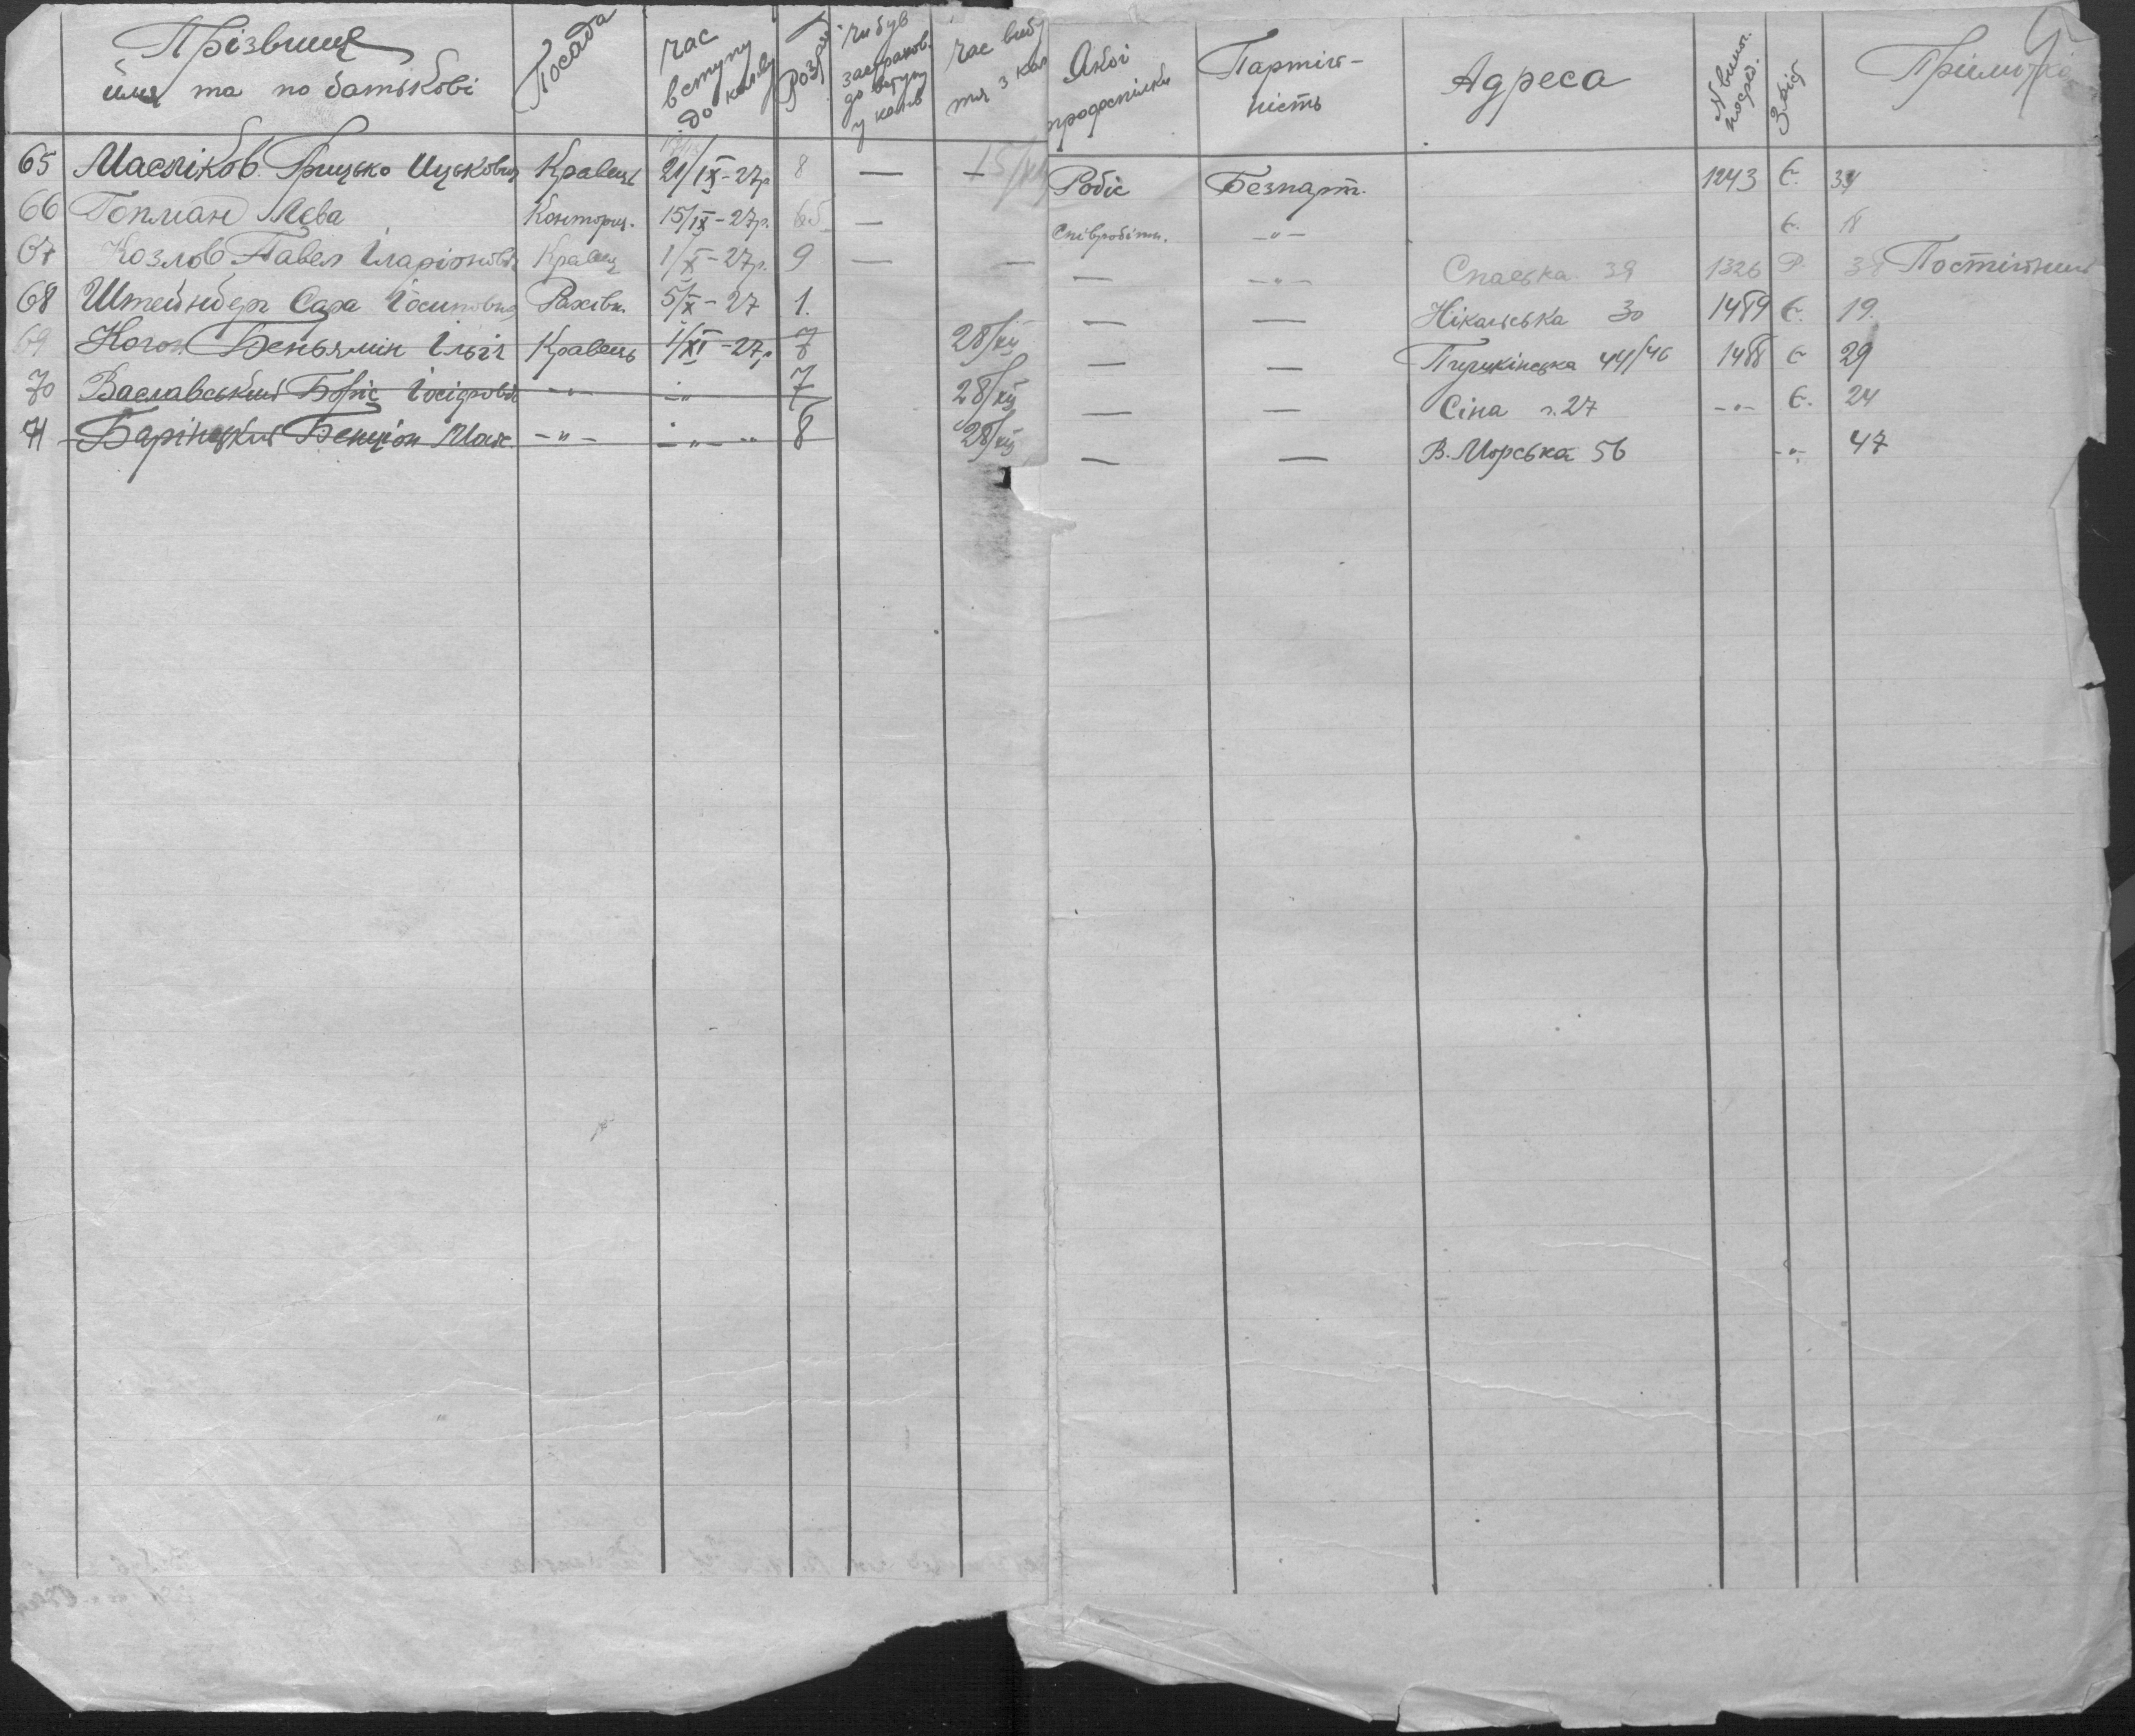 Прізвище ймя та по батькові Посада час вступу до колів Розряд чи був застрахов. до вступу у колів час вибу тя з кол Якої профспілки Партій-ність Адреса № вищог. посред. Приймітка
65 Масліков Грицько Ицькович Кравець 21/IX-27р. 8 — — Робіс Безпарт. 1243 Є. 34
66 Гопман Лєва Конторщ. 15/IX-27р. — Співробітн. -"- Є. 18
67 Козлов Павел Іларіонович Кравец 1/X-27р. 9 — — — -"- Спаська 38 1326 Р. 38 Постійний
68 Штейнберг Сара Йосиповна Рахівн. 5/X-27 1. — — Нікольська 30 1489 Є. 19.
69 Коган Беньямін Ільіч Кравець 1/XI-27р 7 28/XII — — Пушкінська 44/46 1488 Є 29
70 Ваславський Боріс Йосіфович -"- -"- 7 28/XII — — Сіна г. 27 -"- Є. 24
71 Барінецкий Бенціон Мох. -"- -"- " 8 28/XII — — В. Морська 56 -"- 47